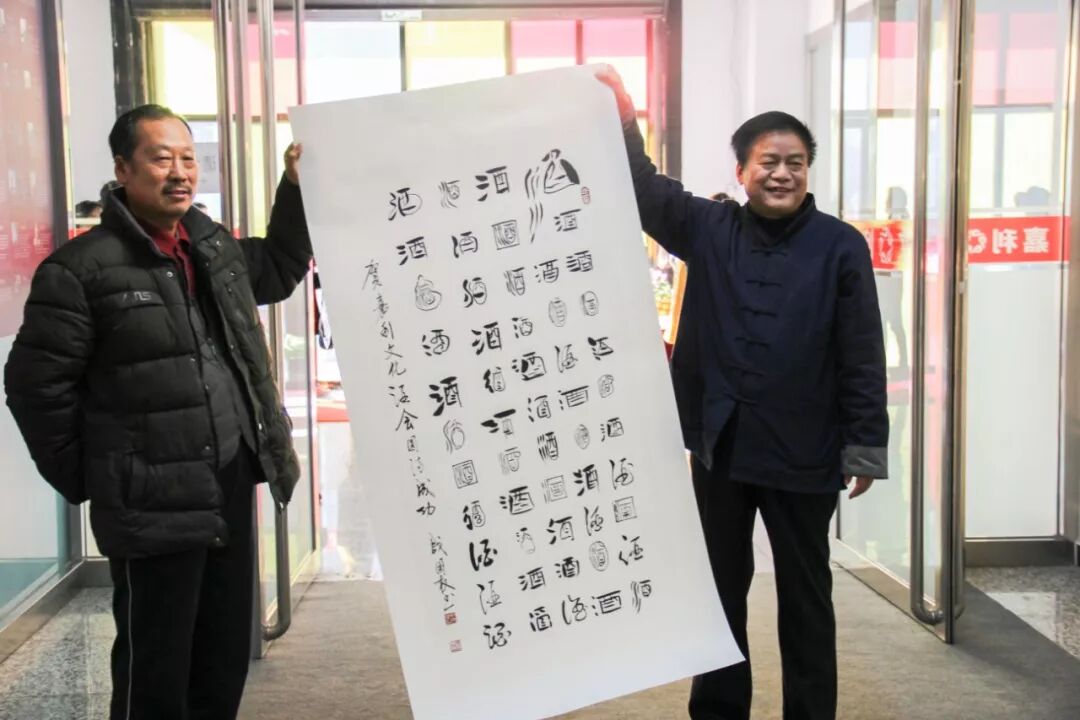 酒酒酒酒酒酒酒酒酒酒酒
酒酒酒酒酒酒酒酒酒酒酒
酒酒酒酒酒酒酒酒酒酒酒
酒酒酒酒酒酒酒酒酒酒酒
酒酒酒酒酒酒酒酒酒
贺嘉利文化酒会圆满成功
嘉利